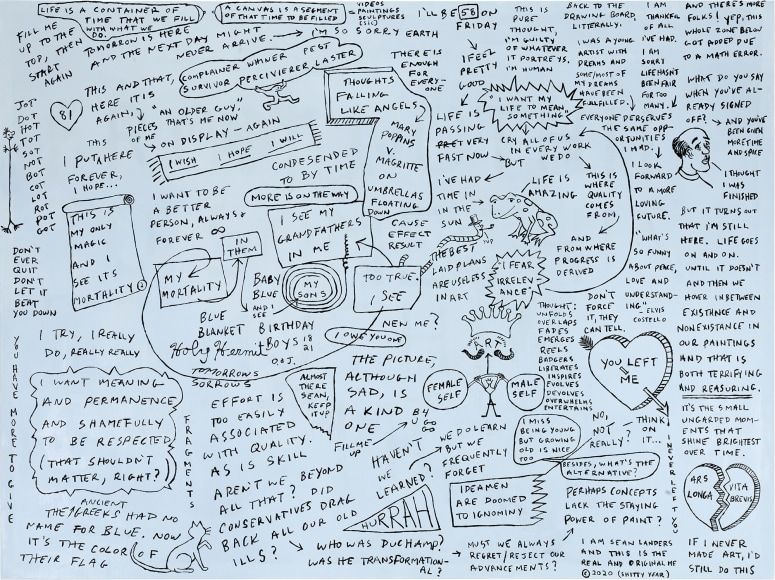 LIFE IS A CONTAINER OF
TIME THAT WE FILL
WITH WHAT WE
DO.
FILL ME
UP TO THE
TOP, THEN
START
AGAIN
TOMORROW IS HERE
AND THE NEXT DAY MIGHT
NEVER ARRIVE.
A CANVAS IS A SEGMENT
OF THAT TIME TO BE FILLED
VIDEOS
PAINTINGS
SCULPTURES
(SIC)
I'M SO SORRY EARTH
I'LL BE 58 ON
FRIDAY
I FEEL
PRETTY
GOOD
COMPLAINER WHINER PEST
SURVIVOR PERCIVIERER LASTER
THIS AND THAT,
HERE IT IS
AGAIN,
PIECES
OF ME
81
JOT
DOT
HOT
TOT
SOT
NOT
BOT
COT
LOT
ROT
POT
GOT
THIS
I PUT A HERE
FOREVER,
I HOPE...
"AN OLDER GUY,"
THAT'S ME NOW
ON DISPLAY - AGAIN
I WISH I HOPE I WILL
THOUGHTS
FALLING
LIKE ANGELS
MARY
POPPINS
V.
MAGRITTE
ON
UMBRELLAS
FLOATING
DOWN
THERE IS
ENOUGH
FOR
EVERY-
ONE
CONDESENDED
TO BY TIME
MORE IS ON THE WAY
I WANT TO BE
A BETTER
PERSON, ALWAYS &
FOREVER ∞
THIS IS
MY ONLY
MAGIC
AND I
SEE ITS
MORTALITY
DON'T
EVER
QUIT
DON'T
LET IT
BEAT
YOU DOWN
IN
THEM
MY
MORTALITY
I SEE MY
GRANDFATHERS
IN ME
CAUSE
EFFECT
RESULT
BABY
BLUE
AND I
SEE
MY
SONS
TOO TRUE.
I SEE
BLUE
BLANKET
BIRTHDAY
BOYS 18
21
Holy Hermit
O & J.
TOMORROWS
SORROWS
NEN ME?
I OWE YOU ONE
THIS IS
PURE
THOUGHT,
I'M GUILTY
OF WHATEVER
IT PORTREYS.
I'M HUMAN
"I WANT MY
LIFE TO MEAN
SOMETHING"
LIFE IS
PASSING
VERY
FAST NOW
BUT
CRY ALL OF US
IN EVERY WORK
WE DO
I'VE HAD
TIME IN
IN THE
SUN
LIFE IS
AMAZING
THIS IS
WHERE
QUALITY
COMES
FROM
AND
FROM WHERE
PROGRESS IS
DERIVED
'UP
THE BEST
LAID PLANS
ARE USELESS
IN ART
I FEAR
IRRELEV
ANCE"
BACK TO THE
DRAWING BOARD,
LITERALLY.
I WAS A YOUNG
ARTIST WITH
DREAMS AND
SOME/MOST OF
MY DREAMS
HAVE BEEN
FULFILLED.
I AM
THANKFUL
OF ALL
I'VE HAD.
I AM
SORRY
LIFE HASN'T
BEEN FAIR
FOR TOO
MANY.
EVERYONE PERSERVES
THE SAME OPP-
ORTUNITIES
I HAD.
I LOOK
FORWARD
TO A MORE
LOVING
FUTURE.
"WHAT'S
SO FUNNY
ABOUT PEACE,
LOVE AND
UNDERSTAND-
ING"
- ELVIS
COSTELLO
AND THERE'S MORE
FOLKS! YEP, THIS
WHOLE ZONE BELOW
GOT ADDED DUE
TO A MATH ERROR.
WHAT DO YOU SAY
WHEN YOU'VE AL-
READY SIGNED
OFF?
AND YOU'VE
BEEN GIVEN
MORE TIME
AND SPACE
I THOUGHT
I WAS
FINISHED
BUT IT TURNS OUT
THAT I'M STILL
HERE. LIFE GOES
ON AND ON.
UNTIL IT DOESN'T
AND THEN WE
HOVER INBETWEEN
EXISTANCE AND
NONEXISTANCE IN
OUR PAINTINGS
AND THAT IS
BOTH TERRIFYING
AND REASURING.
IT'S THE SMALL
UNGARDED MOM-
ENTS THAT
SHINE BRIGHTEST
OVER TIME.
ARS
LONGA
VITA
BREVIS
IF I NEVER
MADE ART, I'D
STILL DO THIS
THOUGHT:
UNFOLDS
OVERLAPS
FADES
EMERGES
REELS
BADGERS
LIBERATES
INSPIRES
EVOLVES
DEVOLVES
OVERWHELMS
ENTERTAINS
DON'T
FORCE
IT, THEY
CAN TELL.
YOU LEFT
ME
I TRY, I REALLY
DO, REALLY REALLY
YOU HAVE MORE TO GIVE
I WANT MEANING
AND PERMANENCE
AND SHAMEFULLY
TO BE RESPECTED
(THAT SHOULDN'T
MATTER, RIGHT?)
FRAGMENTS
ANCIENT
THE GREEKS HAD NO
NAME FOR BLUE. NOW
IT'S THE COLOR OF
THEIR FLAG
EFFORT IS
TOO EASILY
ASSOCIATED
WITH QUALITY.
AS IS SKILL.
AREN'T WE, BEYOND
ALL THAT? DID
CONSERVATIVES DRAG
BACK ALL OUR OLD
ILLS?
ALMOST
THERE
SEAN,
KEEP
IT UP
THE PICTURE,
ALTHOUGH
SAD, IS
A KIND
ONE
FILL ME
UP
B4
U
GO
HAVEN'T
WE
LEARNED?
HURRAH
WHO WAS DUCHAMP?
WAS HE TRANSFORMATION-
AL?
ART
FEMALE
SELF
MALE
SELF
WE DO LEARN
BUT WE
FREQUENTLY
FORGET
IDEAMEN
ARE DOOMED
TO IGNOMINY
MUST WE ALWAYS
REGRET/REJECT OUR
ADVANCEMENTS?
I MISS
BEING YOUNG
BUT GROWING
OLD IS NICE
TOO
NO,
NOT
REALLY?
THINK
ON
IT...
BESIDES, WHAT'S THE
ALTERNATIVE?
PERHAPS CONCEPTS
LACK THE STAYING
POWER OF PAINT?
I NEVER LEFT YOU
I AM SEAN LANDERS
AND THIS IS THE
REAL AND ORIGINAL ME
© 2020 (SHITTY YEAR)